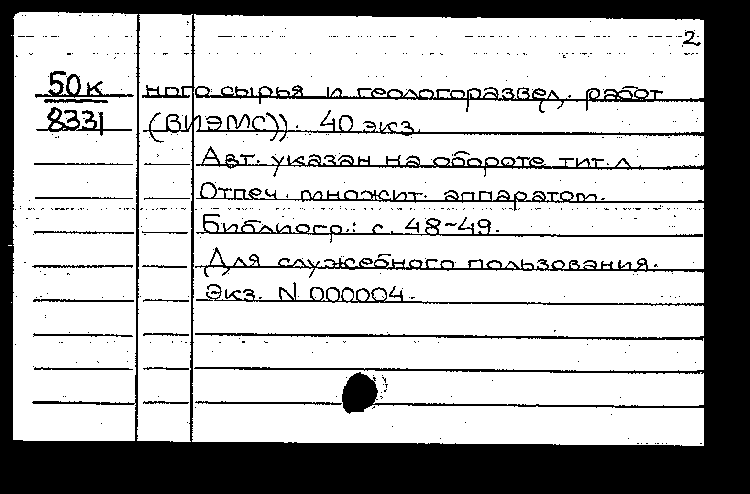 2.
50к ного сырья и геологоразвед. работ
8331 (ВИЭМС)). 40 экз.
Авт. указан на обороте тит. л.
Отпеч. множит. аппаратом.
Библиогр.: с. 48-49.
Для служебного пользования.
Экз. N 000004.